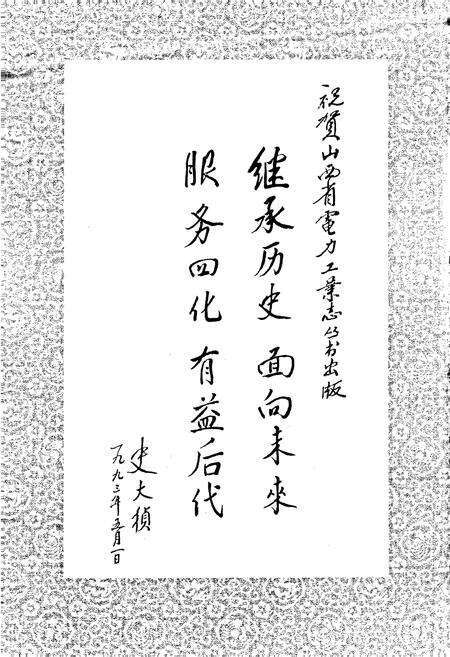 祝贺山西省電力工業志丛书出版
继承历史 面向未来
服务四化 有益后代
史大桢
一九九三年五月一日